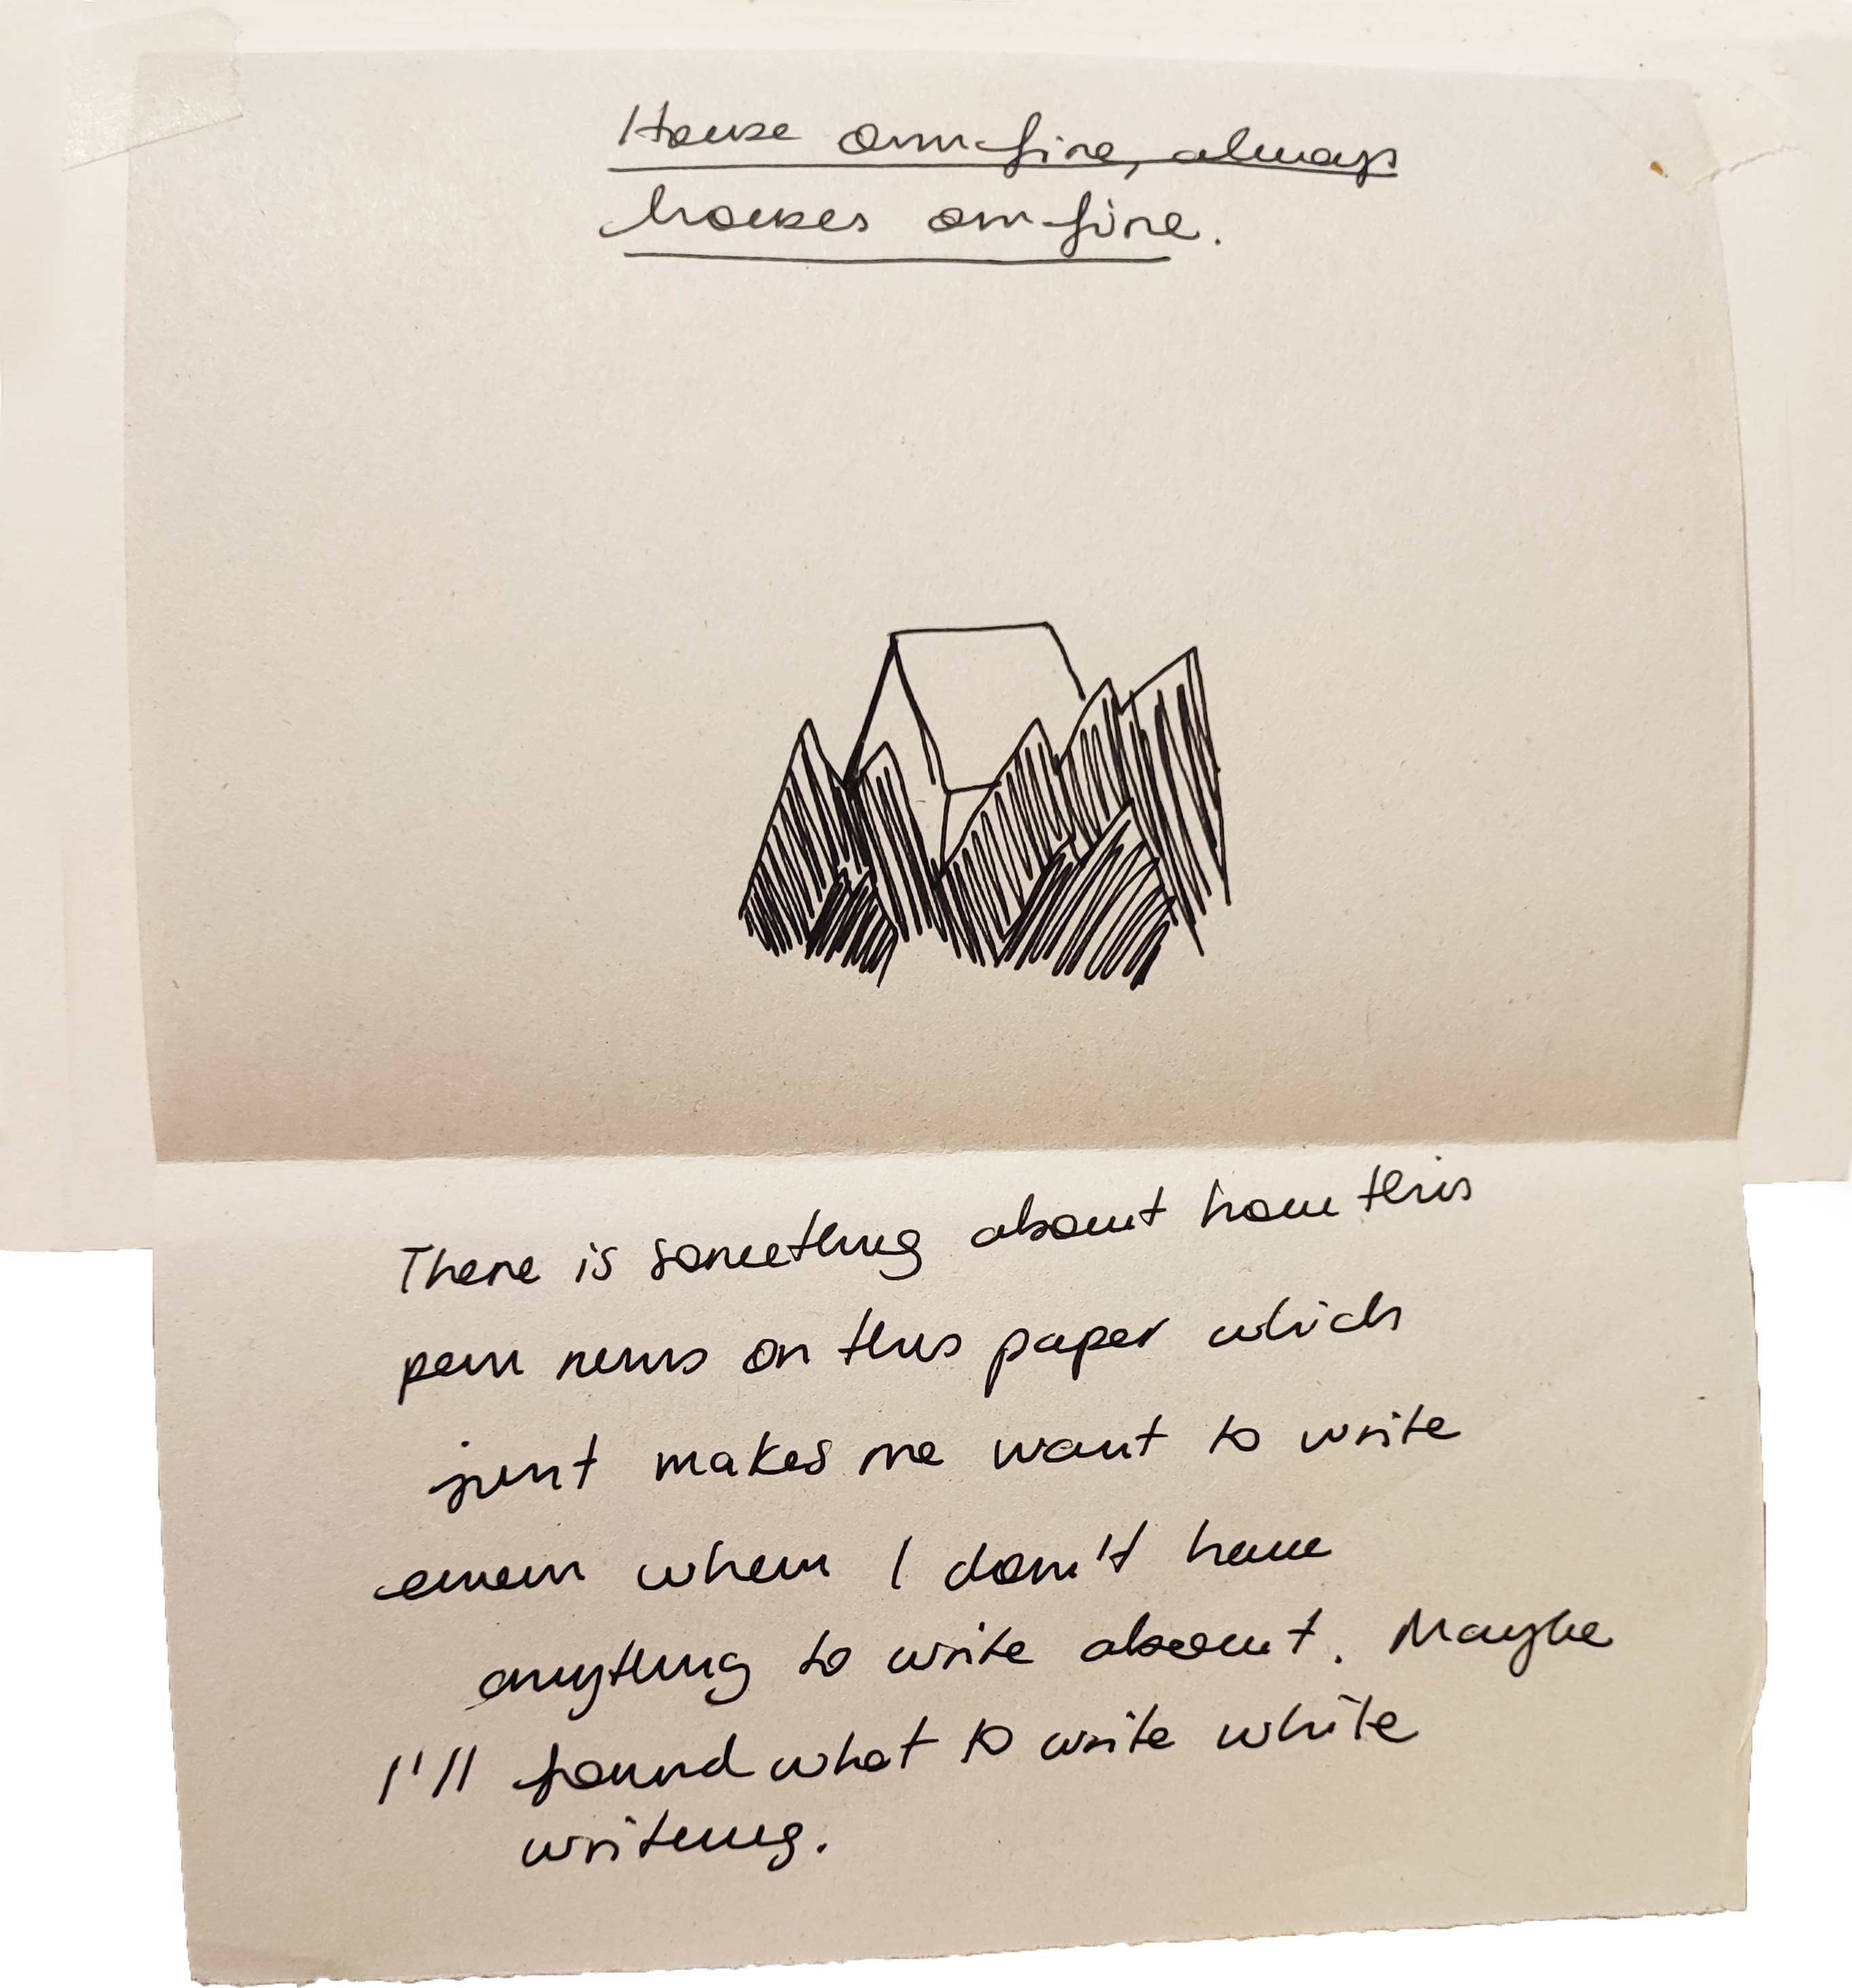 House on fire, always
houses on fire.
There is something about how this
pen runs on this paper which
just makes me want to write
even when I don't have
anything to write about. Maybe
I'll found what to write while
writing.